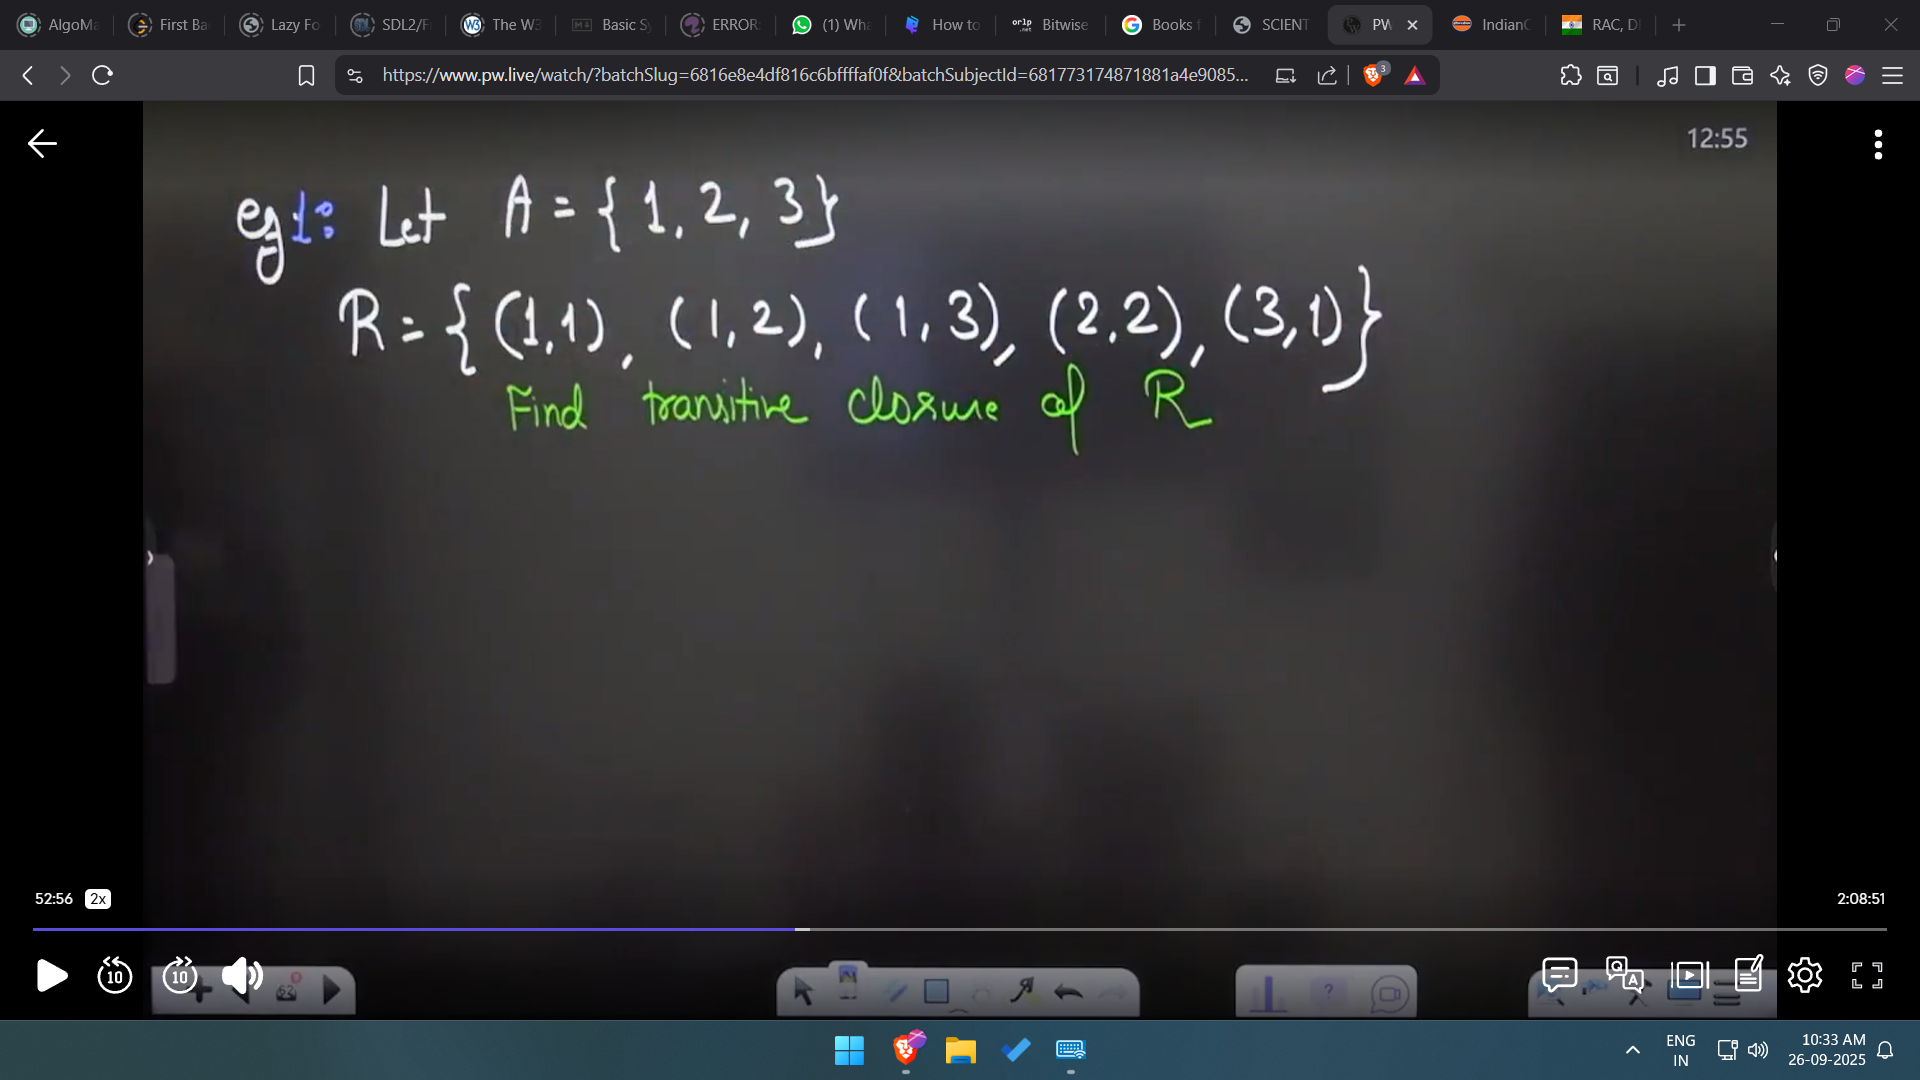 AlgoMa
First Ba
Lazy Fo
SDL2/F
The W3
Basic Sy
ERROR:
(1) Wha
How to
orlp .net Bitwise
Books f
SCIENT
PW
IndianO
RAC, D
https://www.pw.live/watch/?batchSlug=6816e8e4df816c6bffffaf0f&batchSubjectId=681773174871881a4e9085...
3
12:55
eg1: Let A = { 1, 2, 3}
R = { (1,1), (1,2), (1,3), (2,2), (3,1)}
Find transitive closure of R
52:56 2x
2:08:51
10 10
52
?
Q A
ENG
IN
10:33 AM
26-09-2025